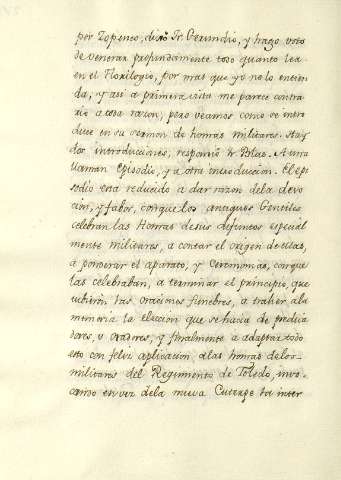 por Zopenco, dixo Fr. Gerundio, y hago voto
de venerar profundamente todo quanto lea
en el Florilogio, por mas que yo no lo entien
da, y asi a primera vista me parece contra
rio a toda razon; pero veamos como se intro
duce en su sermon de honras militares. Hay
dos introducciones, respondió Fr. Blas. A una
llaman Episodio, y a otra introduccion. El epi
sodio esta reducido a dar razon dela devo
cion, y fabor, conque los antiguos Gentiles
celebran las Honras desus difuntos especial
mente militares, a contar el origen de ellas,
a ponderar el aparato, y Ceremonias, conque
las celebraban, a terminar el principio, que
tubieron las oraciones funebres, a traher ala
memoria la eleccion que se hacia de predica
dores, u oradores, y finalmente a adaptar todo
esto con feliz aplicacion, alas honras delos
militares del Regimiento de Toledo, invo
cando en vez dela nueva